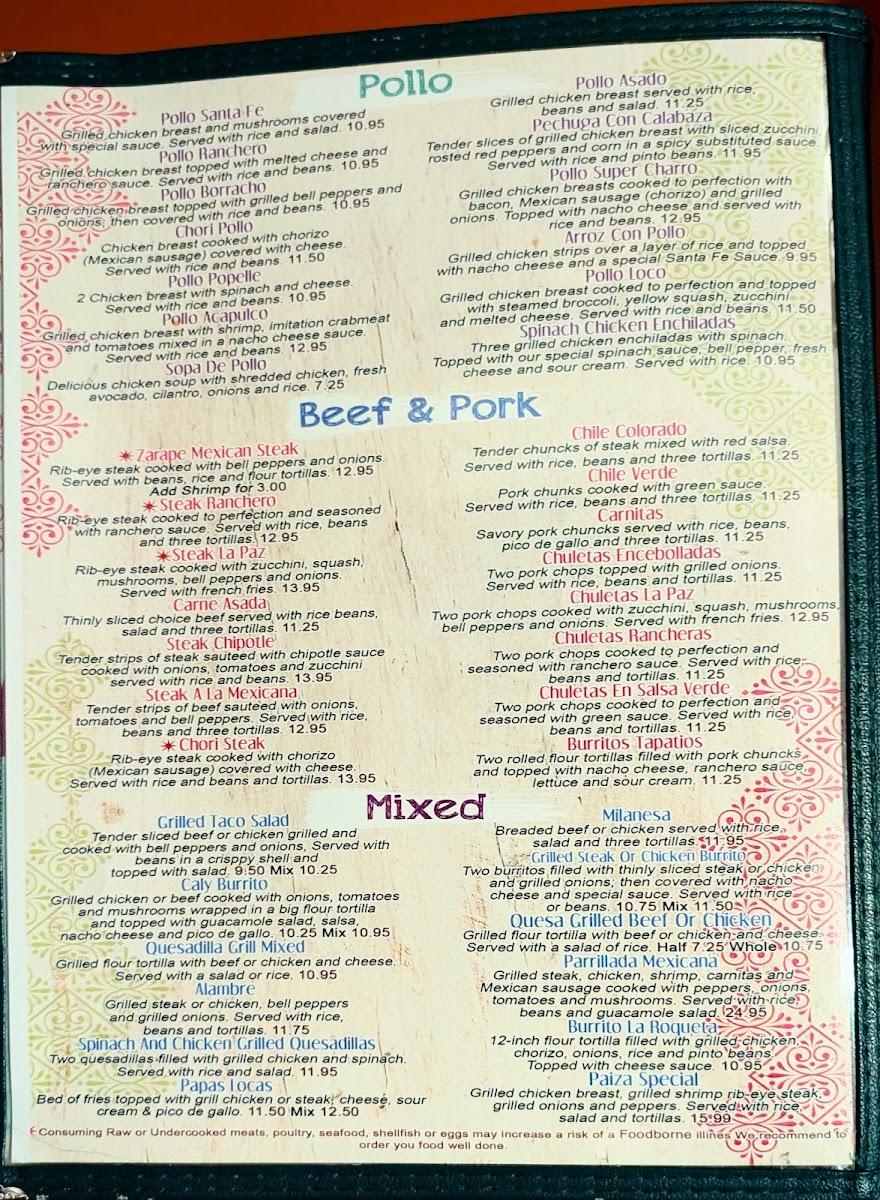 Pollo
Pollo Santa Fe
Grilled chicken breast and mushrooms covered
with special sauce. Served with rice and salad. 10.95
Pollo Ranchero
Grilled chicken breast topped with melted cheese and
ranchero sauce. Served with rice and beans. 10.95
Pollo Borracho
Grilled chicken breast topped with grilled bell peppers and
onions; then covered with rice and beans. 10.95
Chori Pollo
Chicken breast cooked with chorizo
(Mexican sausage) covered with cheese.
Served with rice and beans. 11.50
Pollo Popelle
2 Chicken breast with spinach and cheese.
Served with rice and beans. 10.95
Pollo Acapulco
Grilled chicken breast with shrimp, imitation crabmeat
and tomatoes mixed in a nacho cheese sauce.
Served with rice and beans. 12.95
Sopa De Pollo
Delicious chicken soup with shredded chicken, fresh
avocado, cilantro, onions and rice. 7.25
Pollo Asado
Grilled chicken breast served with rice,
beans and salad. 11.25
Pechuga Con Calabaza
Tender slices of grilled chicken breast with sliced zucchini,
rosted red peppers and corn in a spicy substituted sauce.
Served with rice and pinto beans. 11.95
Pollo Super Charro
Grilled chicken breasts cooked to perfection with
bacon, Mexican sausage (chorizo) and grilled
onions. Topped with nacho cheese and served with
rice and beans. 12.95
Arroz Con Pollo
Grilled chicken strips over a layer of rice and topped
with nacho cheese and a special Santa Fe Sauce. 9.95
Pollo Loco
Grilled chicken breast cooked to perfection and topped
with steamed broccoli, yellow squash, zucchini
and melted cheese. Served with rice and beans. 11.50
Spinach Chicken Enchiladas
Three grilled chicken enchiladas with spinach.
Topped with our special spinach sauce, bell pepper, fresh
cheese and sour cream. Served with rice. 10.95
Beef & Pork
✶ Zarape Mexican Steak
Rib-eye steak cooked with bell peppers and onions.
Served with beans, rice and flour tortillas. 12.95
Add Shrimp for 3.00
✶ Steak Ranchero
Rib-eye steak cooked to perfection and seasoned
with ranchero sauce. Served with rice, beans
and three tortillas. 12.95
✶ Steak La Paz
Rib-eye steak cooked with zucchini, squash,
mushrooms, bell peppers and onions.
Served with french fries. 13.95
Carne Asada
Thinly sliced choice beef served with rice beans,
salad and three tortillas. 11.25
Steak Chipotle
Tender strips of steak sauteed with chipotle sauce
cooked with onions, tomatoes and zucchini
served with rice and beans. 13.95
Steak A La Mexicana
Tender strips of beef sauteed with onions,
tomatoes and bell peppers. Served with rice,
beans and three tortillas. 12.95
✶ Chori Steak
Rib-eye steak cooked with chorizo
(Mexican sausage) covered with cheese.
Served with rice and beans and tortillas. 13.95
Chile Colorado
Tender chuncks of steak mixed with red salsa.
Served with rice, beans and three tortillas. 11.25
Chile Verde
Pork chunks cooked with green sauce.
Served with rice, beans and three tortillas. 11.25
Carnitas
Savory pork chuncks served with rice, beans,
pico de gallo and three tortillas. 11.25
Chuletas Encebolladas
Two pork chops topped with grilled onions.
Served with rice, beans and tortillas. 11.25
Chuletas La Paz
Two pork chops cooked with zucchini, squash, mushrooms,
bell peppers and onions. Served with french fries. 12.95
Chuletas Rancheras
Two pork chops cooked to perfection and
seasoned with ranchero sauce. Served with rice;
beans and tortillas. 11.25
Chuletas En Salsa Verde
Two pork chops cooked to perfection and
seasoned with green sauce. Served with rice,
beans and tortillas. 11.25
Burritos Tapatios
Two rolled flour tortillas filled with pork chuncks
and topped with nacho cheese, ranchero sauce,
lettuce and sour cream. 11.25
Mixed
Grilled Taco Salad
Tender sliced beef or chicken grilled and
cooked with bell peppers and onions, Served with
beans in a crisppy shell and
topped with salad. 9.50 Mix 10.25
Caly Burrito
Grilled chicken or beef cooked with onions, tomatoes
and mushrooms wrapped in a big flour tortilla
and topped with guacamole salad, salsa,
nacho cheese and pico de gallo. 10.25 Mix 10.95
Quesadilla Grill Mixed
Grilled flour tortilla with beef or chicken and cheese.
Served with a salad or rice. 10.95
Alambre
Grilled steak or chicken, bell peppers
and grilled onions. Served with rice,
beans and tortillas. 11.75
Spinach And Chicken Grilled Quesadillas
Two quesadillas filled with grilled chicken and spinach.
Served with rice and salad. 11.95
Papas Locas
Bed of fries topped with grill chicken or steak, cheese, sour
cream & pico de gallo. 11.50 Mix 12.50
Milanesa
Breaded beef or chicken served with rice,
salad and three tortillas. 11.95
Grilled Steak Or Chicken Burrito
Two burritos filled with thinly sliced steak or chicken
and grilled onions; then covered with nacho
cheese and special sauce. Served with rice
or beans. 10.75 Mix 11.50
Quesa Grilled Beef Or Chicken
Grilled flour tortilla with beef or chicken and cheese.
Served with a salad of rice. Half 7.25 Whole 10.75
Parrillada Mexicana
Grilled steak, chicken, shrimp, carnitas and
Mexican sausage cooked with peppers, onions,
tomatoes and mushrooms. Served with rice,
beans and guacamole salad. 24.95
Burrito La Roqueta
12-inch flour tortilla filled with grilled chicken,
chorizo, onions, rice and pinto beans.
Topped with cheese sauce. 10.95
Paiza Special
Grilled chicken breast, grilled shrimp rib-eye steak,
grilled onions and peppers. Served with rice,
salad and tortillas. 15.99
Consuming Raw or Undercooked meats, poultry, seafood, shellfish or eggs may increase a risk of a Foodborne illines We recommend to
order you food well done.